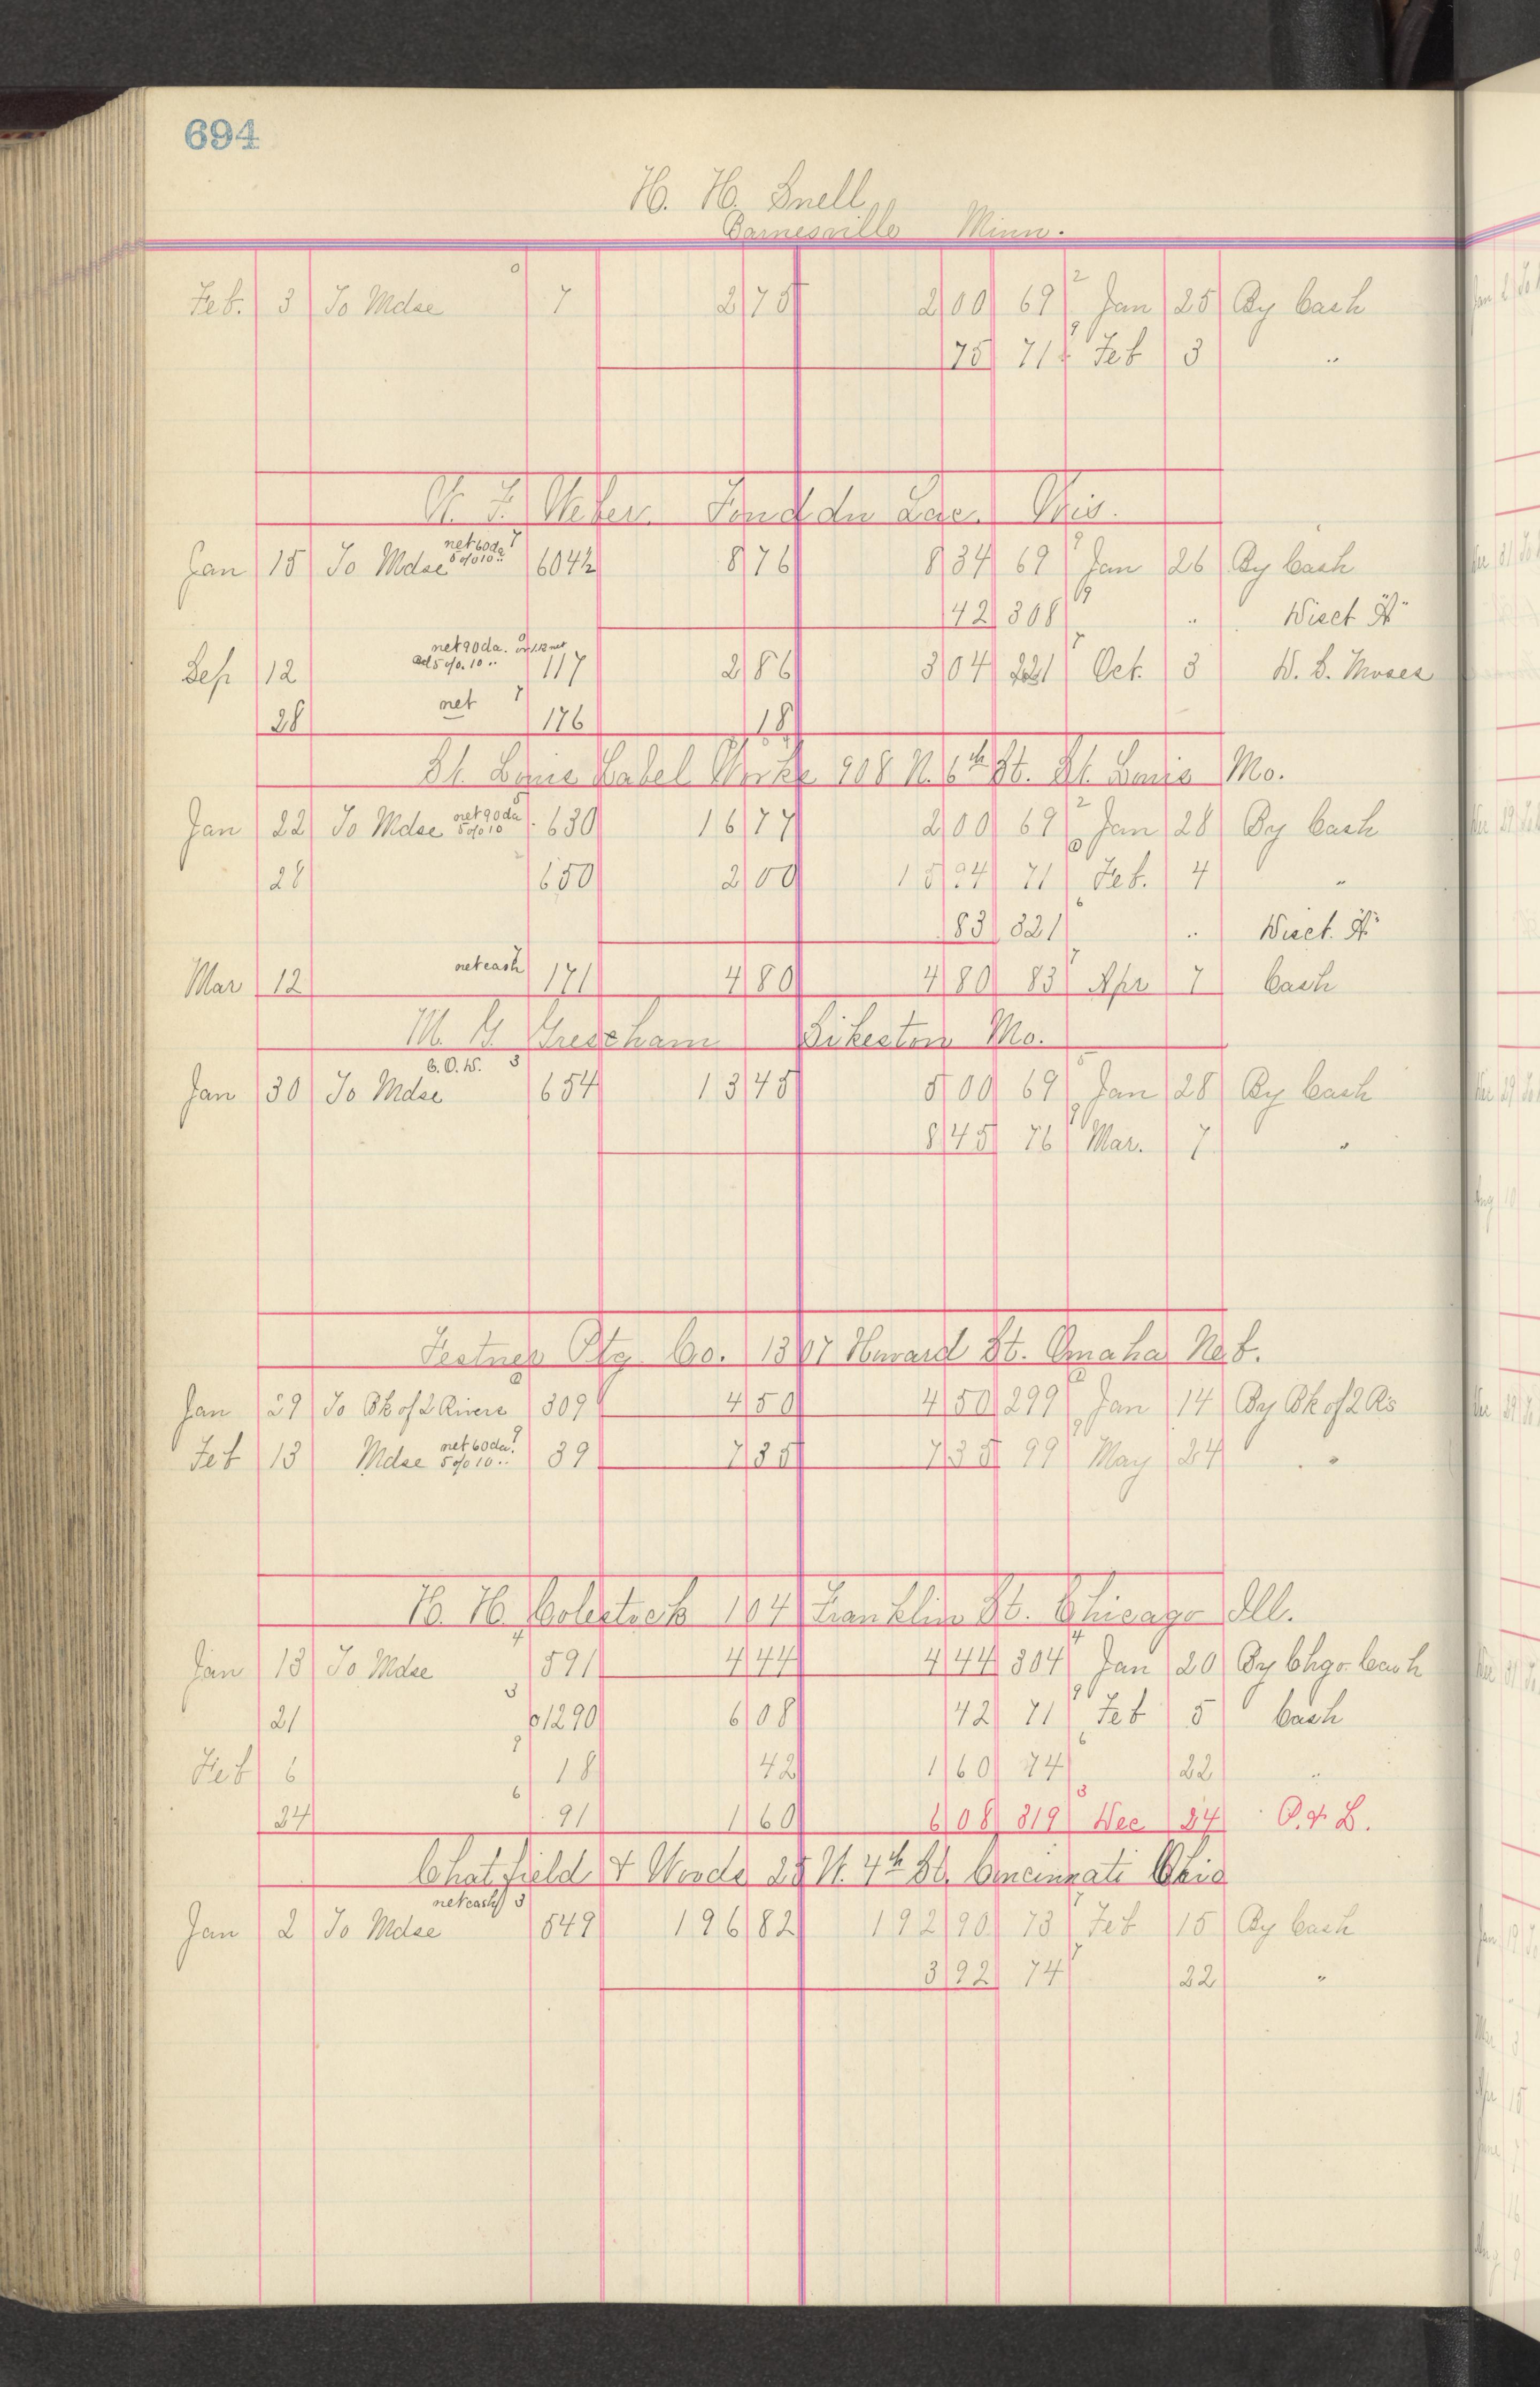 694
H. H. Snell
Barnesville Minn.
Feb. 3 To Mdse 7 2 75 2 00 69 Jan 25 By Cash
75 71 Feb 3 "
Fond du Lac. Wis.
Jan 15 To Mdse net 60 da 5 % 10 " 604½ 8 76 8 34 69 Jan 26 By Cash
42 308 " Disct "A"
Sep 12 net 90 da. 5 % 10 " 117 2 86 3 04 221 Oct. 3 D. S. Moses
28 net 176 18
St. Louis Label Works 908 N. 6th St. St. Louis Mo.
Jan 22 To Mdse net 90 da 5 % 10 630 16 77 2 00 69 Jan 28 By Cash
28 650 2 00 71 Feb. 4 "
83 321 " Disct. "A"
Mar 12 net cash 171 4 80 4 80 83 Apr 7 Cash
M. G. Grescham Sikeston Mo.
Jan 30 To Mdse C. O. D. 3 654 13 45 5 00 69 Jan 28 By Cash
8 45 76 Mar. 7 "
Festner Ptg Co. 1307 Howard St. Omaha Neb.
Jan 29 To Bk of 2 Rivers 309 4 50 4 50 299 Jan 14 By Bk of 2 Rs
Feb 13 Mdse net 60 da. 5 % 10 " 39 7 35 7 35 99 May 24 "
H. H. 104 Franklin St. Chicago Ill.
Jan 13 To Mdse 591 4 44 4 44 304 Jan 20 By Chgo. Cash
21 1290 6 08 42 71 Feb 5 Cash
Feb 6 18 42 1 60 74 22 "
24 91 1 60 6 08 319 Dec 24 P. & L.
Chatfield & Woods 25 W. 4th St. Cincinnati Ohio
Jan 2 To Mdse net cash 3 549 196 82 192 90 73 Feb 15 By Cash
3 92 74 22 "